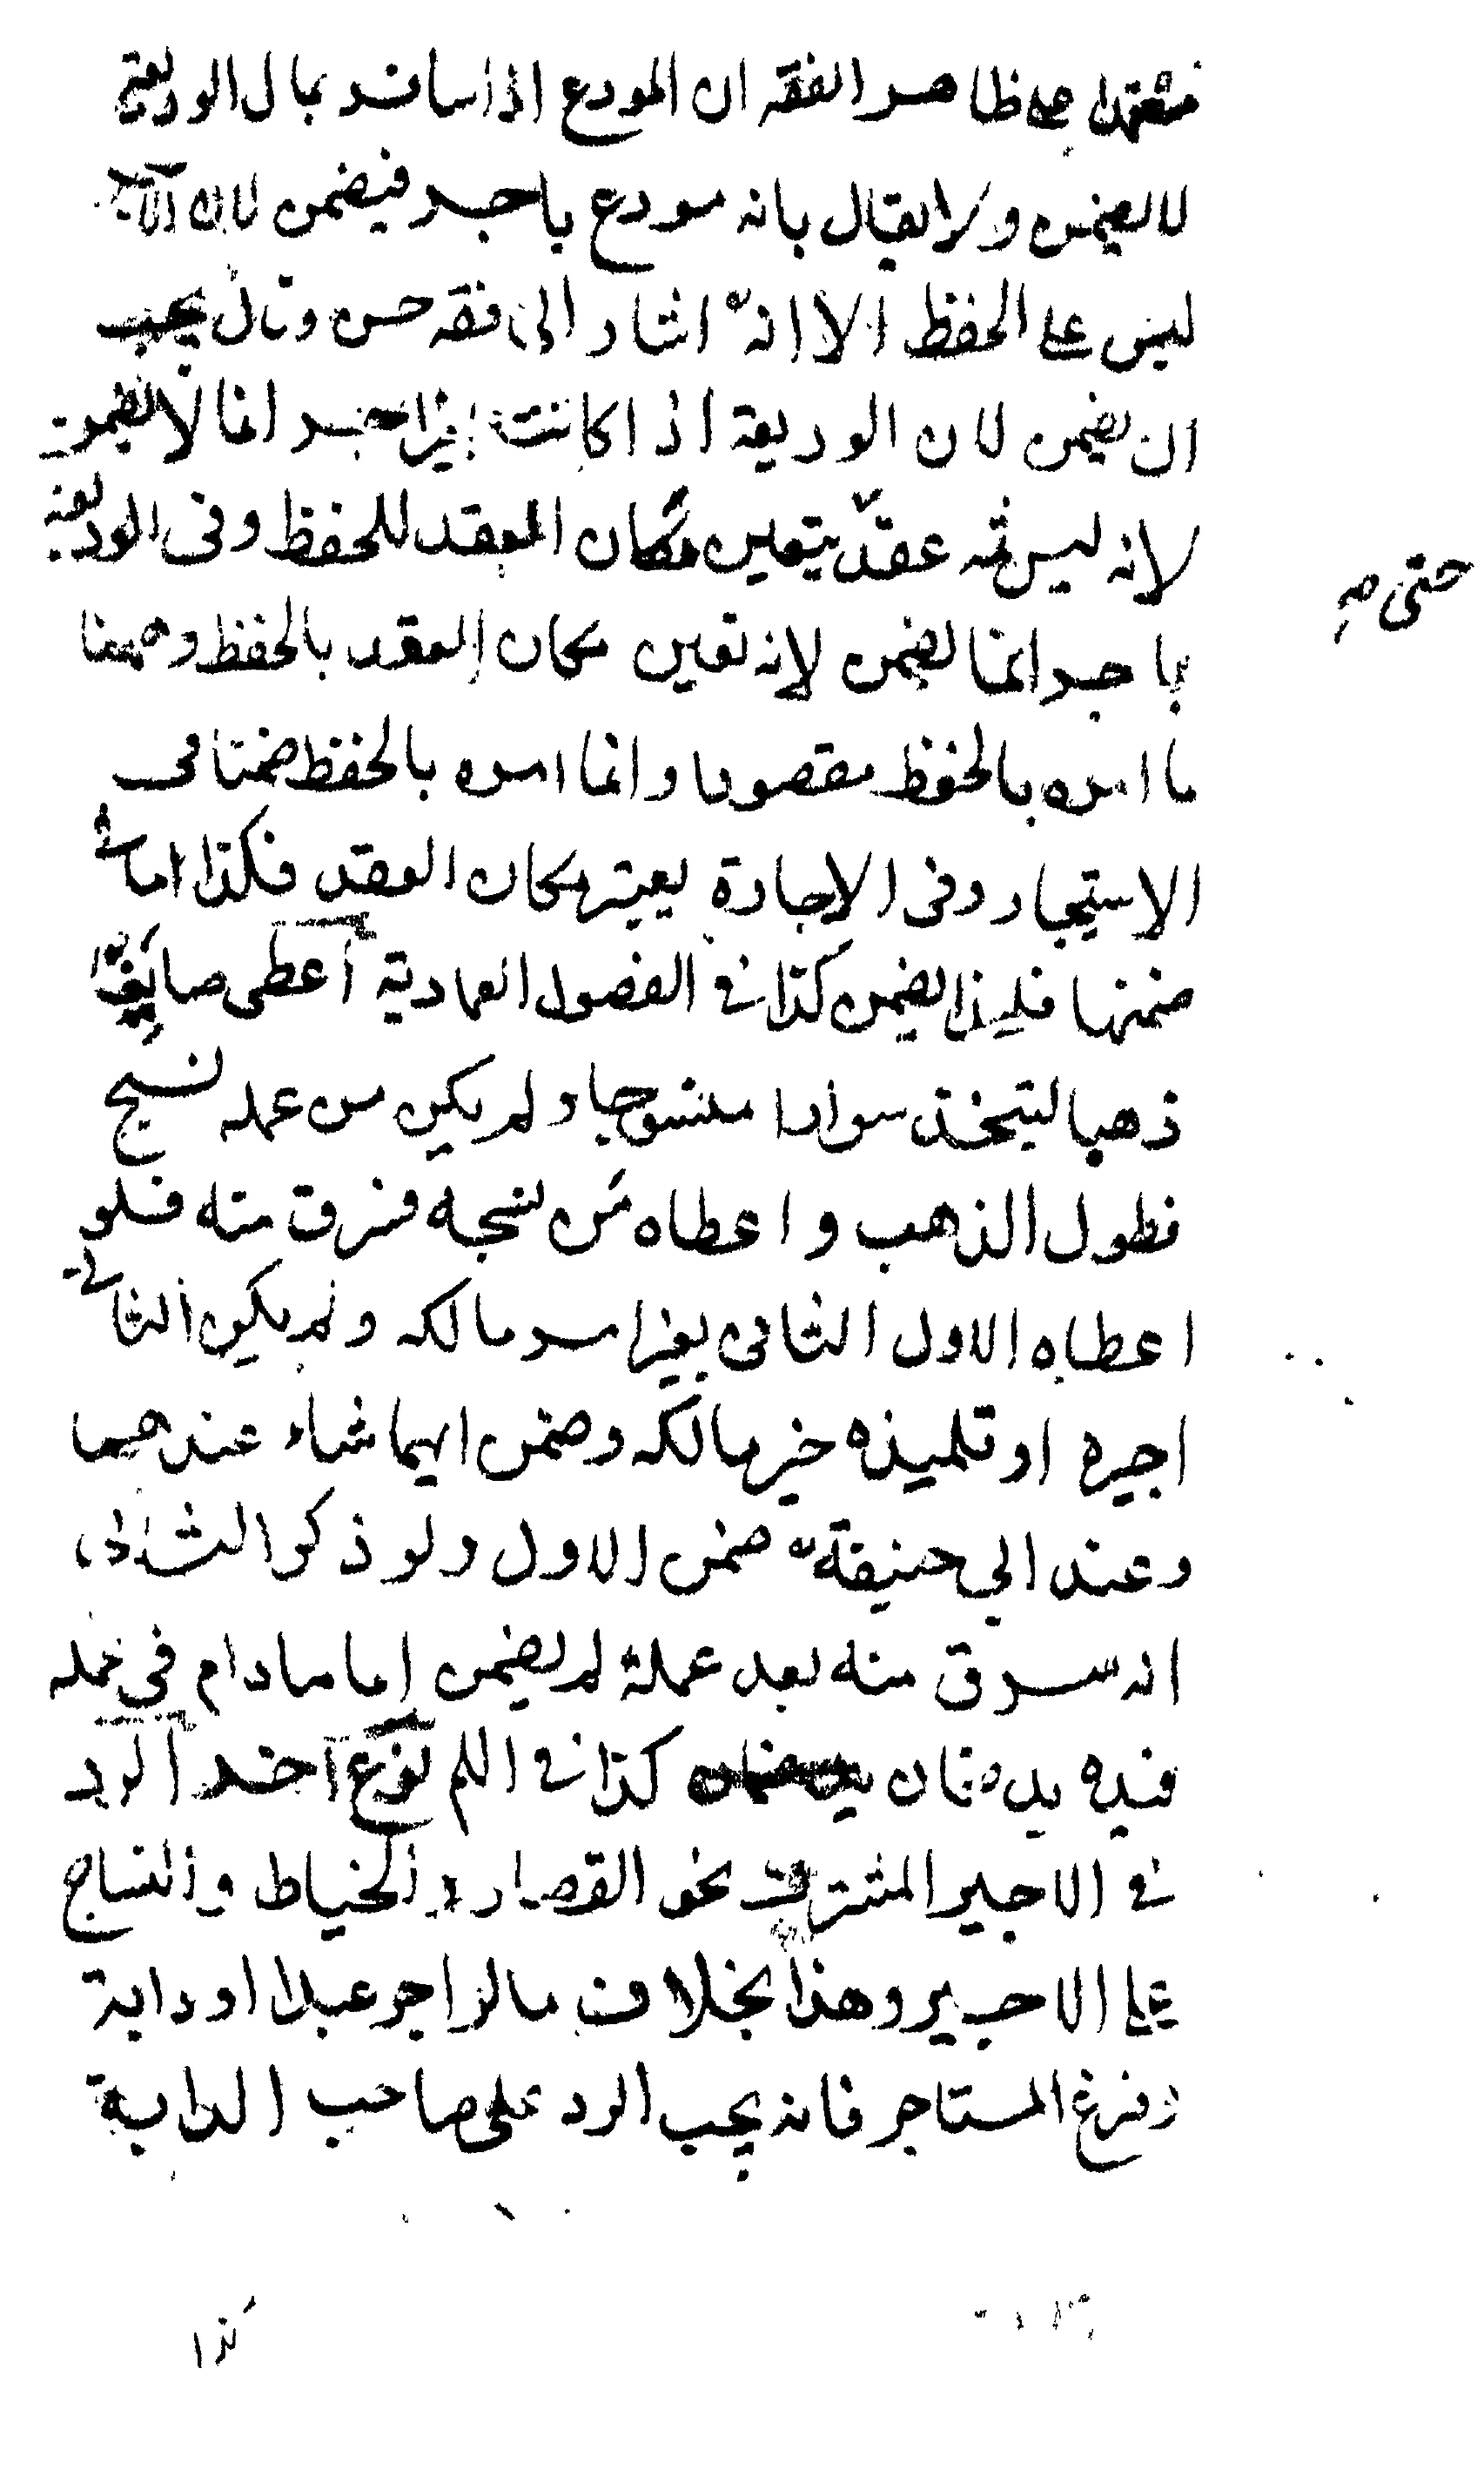 ظاهر الفقه ان المودع اذا سافر بمال الوديعة
لا يضمن ولا يقال بانه مودع باجر فيضمن لان
ليس على الحفظ الا انه اشار الى فقه حسن وقال يجب
ان يضمن لان الوديعة اذا كانت بغير اجر انما لا يضمن
لانه ليس ثمه عقد يتعين مكان العقد للحفظ وفى الوديعة
حتى صح
باجر انما يضمن لانه تعين مكان العقد بالحفظ وههنا
ما امره بالحفظ مقصودا وانما امره بالحفظ ضمنا فى
الاستيجار وفى الاجارة يعتبر مكان العقد فكذا ما فى
ضمنها فلهذا يضمن كذا فى الفصول العمادية اعطى صايغا
ذهبا ليتخذ سوارا منسوجا ولم يكن من عمله نسج
فطول الذهب واعطاه من نسجه فسرق منه فلو
اعطاه الاول الثانى بغير امر مالكه ولم يكن الثانى
اجيره او تلميذه خير مالكه وضمن ايهما شاء عندهما
وعند ابي حنيفة ضمن الاول ولو ذكر الثانى
انه سرق منه بعد عمله لم يضمن اما ما دام في عمله
فيده يد ضمان كذا فى نوع اخر الرد
فى الاجير المشترك نحو القصار والخياط والنساج
على الاجير وهذا بخلاف ما لو اجر عبدا او دابة
وفرغ المستاجر فانه يجب الرد على صاحب الدابة
كذا